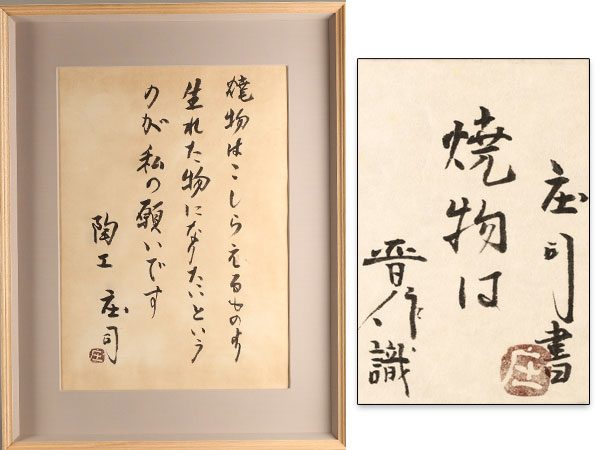 焼物はこしらえるものより
生れた物になりたいという
のが私の願いです
陶工 庄司
庄
庄司書
庄
焼物は
晋作識